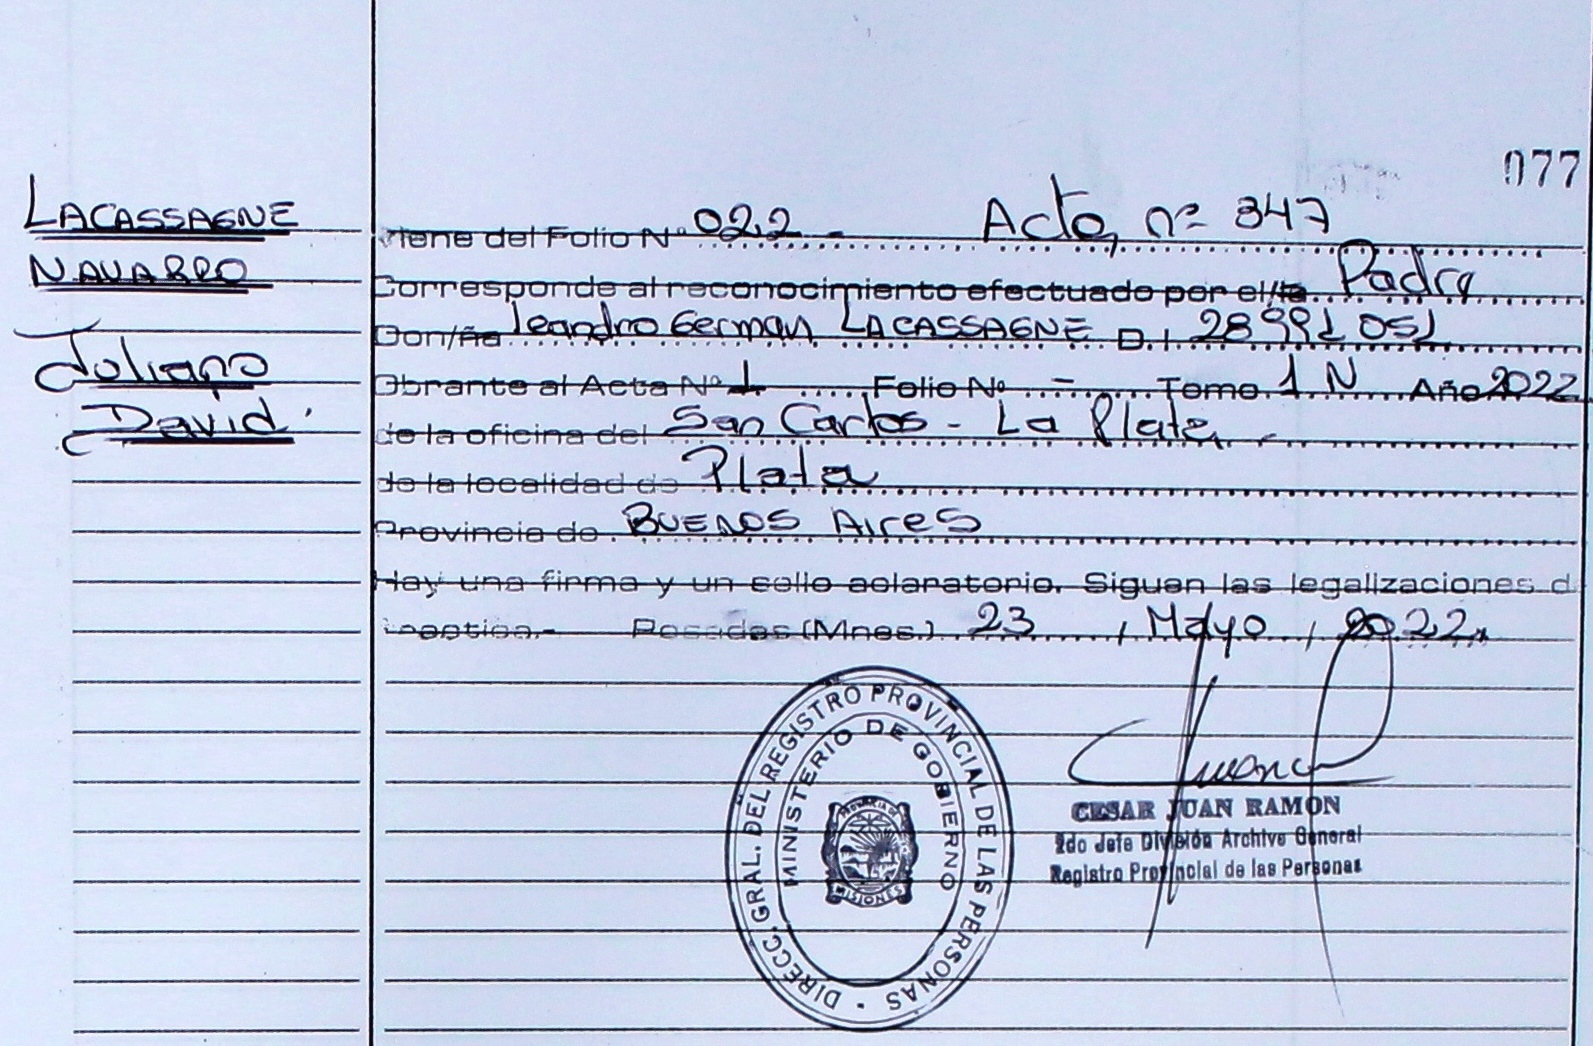 077
LACASSAGNE
NAVARRO
Juliano
David.
Viene del Folio Nº 022.- Acta nº 347
Corresponde al reconocimiento efectuado por el/la Padre
Don/ña Leandro German LACASSAGNE D.I. 28991051
Obrante al Acta Nº 1 Folio Nº - Tomo 1 N Año 2022
de la oficina del San Carlos - La Plata -
de la localidad de Plata
Provincia de BUENOS AIRES
Hay una firma y un sello aclaratorio. Siguen las legalizaciones d
Posadas (Mnes.) 23 , Mayo , 2022.
DIRECC. GRAL. DEL REGISTRO PROVINCIAL DE LAS PERSONAS
MINISTERIO DE GOBIERNO
PROVINCIA DE MISIONES
CESAR JUAN RAMON
2do Jefe División Archivo General
Registro Provincial de las Personas